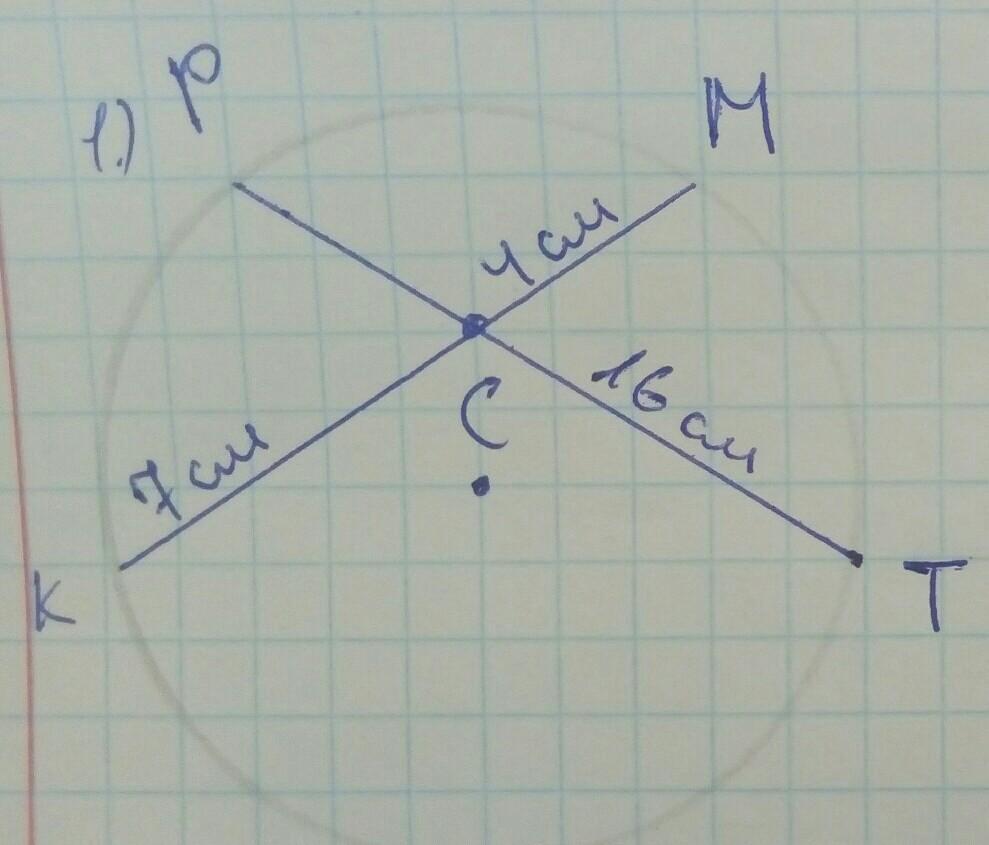 1.) P
M
4 см
C
16 см
7 см
K
T